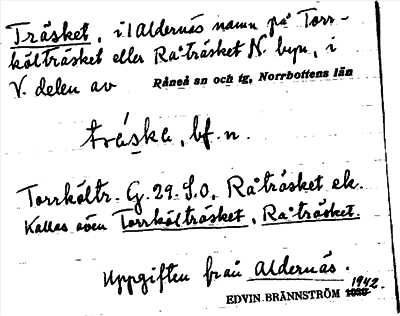 Träsket, i Aldernäs namn på Torr-
költräsket eller Råträsket N. byn, i
V. delen av Råneå sn och tg, Norrbottens län
träske, bf. n.
Torrköltr. G. 29. S.O, Råträsket ek.
Kallas även Torrkölträsket, Råträsket.
Uppgiften från Aldernäs.
1942.
EDVIN BRÄNNSTRÖM